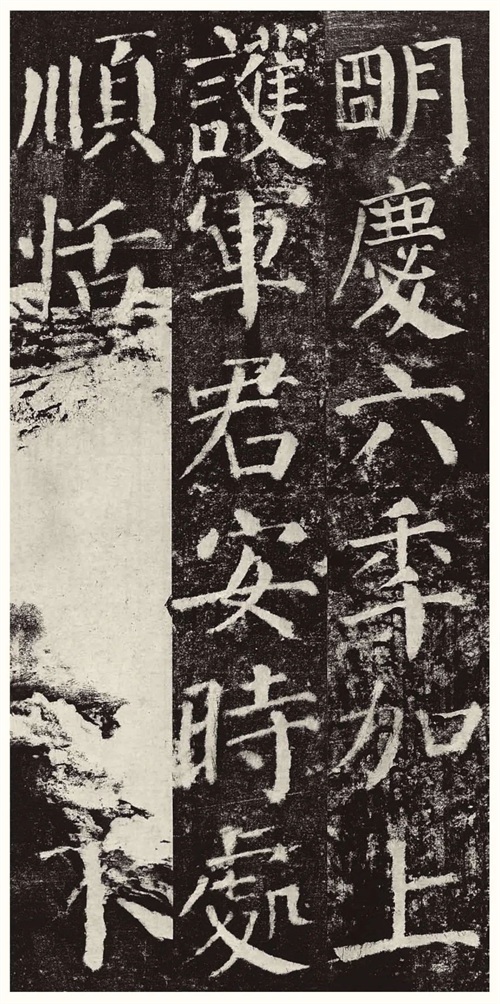 朙慶六秊加上
護軍君安時處
順恬